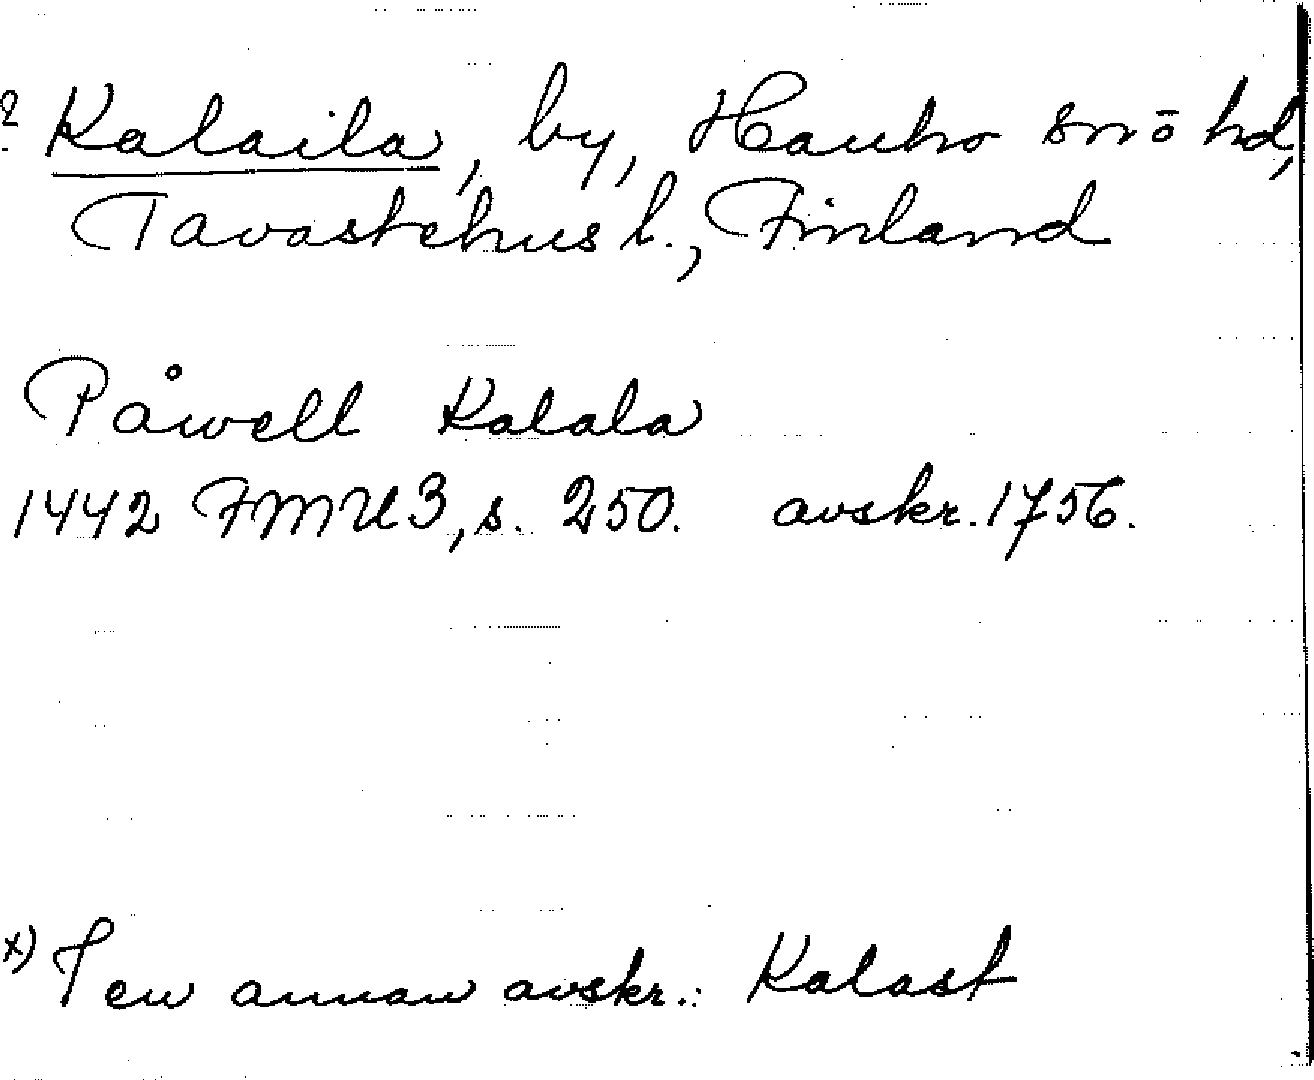 ? Kalaila, by, Hauho sn o hd,
Tavastehus l., Finland
Påwell Kalala
1442 FMU 3, s. 250. avskr. 1756.
x) I en annan avskr.: Kalast